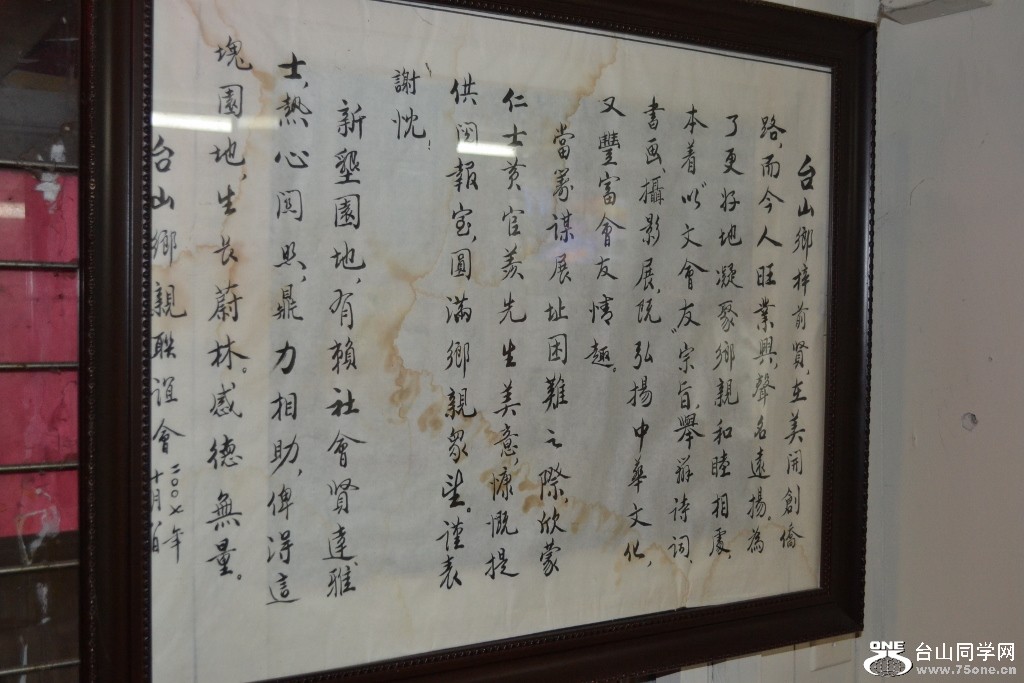 台山鄉梓前賢,在美開創僑
路,而今人旺業興,聲名遠揚,為
了更好地凝聚鄉親和睦相處,
本着以"文會友"宗旨,舉辦詩詞、
書画、攝影展,既弘揚中華文化,
又豐富會友情趣。
當籌謀展址困難之際,欣蒙
仁士黃官羨先生美意,慷慨提
供閱報室,圓滿鄉親衆望。謹表
謝忱!
新墾園地,有賴社會賢達、雅
士,熱心関照,鼎力相助,俾得這
塊園地,生長蔚林。感德無量。
台山鄉親聯誼會
二〇〇七年
十月
ONE
75
台山同学网
www.75one.cn